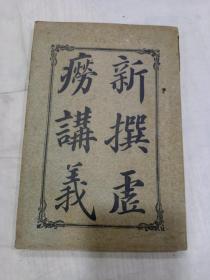 新撰虛
癆講義